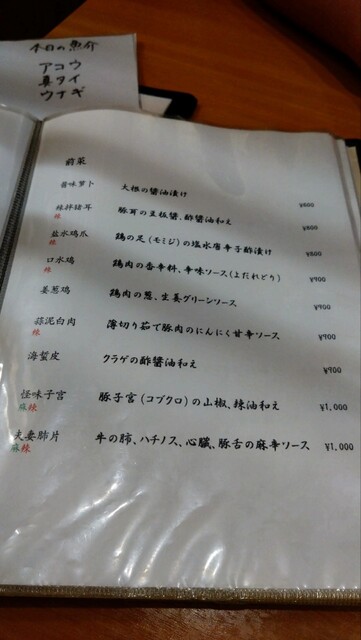 本日の魚介
アコウ
真タイ
ウナギ
前菜
醤味萝卜 大根の醤油漬け ¥600
辣拌猪耳 豚耳の豆板醤、酢醤油和え ¥800
辣
盐水鸡爪 鶏の足(モミジ)の塩水唐辛子酢漬け ¥800
辣
口水鸡 鶏肉の香辛料、辛味ソース(よだれどり) ¥900
辣
姜葱鸡 鶏肉の葱、生姜グリーンソース ¥900
蒜泥白肉 薄切り茹で豚肉のにんにく甘辛ソース ¥900
辣
海蜇皮 クラゲの酢醤油和え ¥900
怪味子宮 豚子宮(コブクロ)の山椒、辣油和え ¥1,000
麻辣
夫妻肺片 牛の肺、ハチノス、心臓、豚舌の麻辛ソース ¥1,000
麻辣